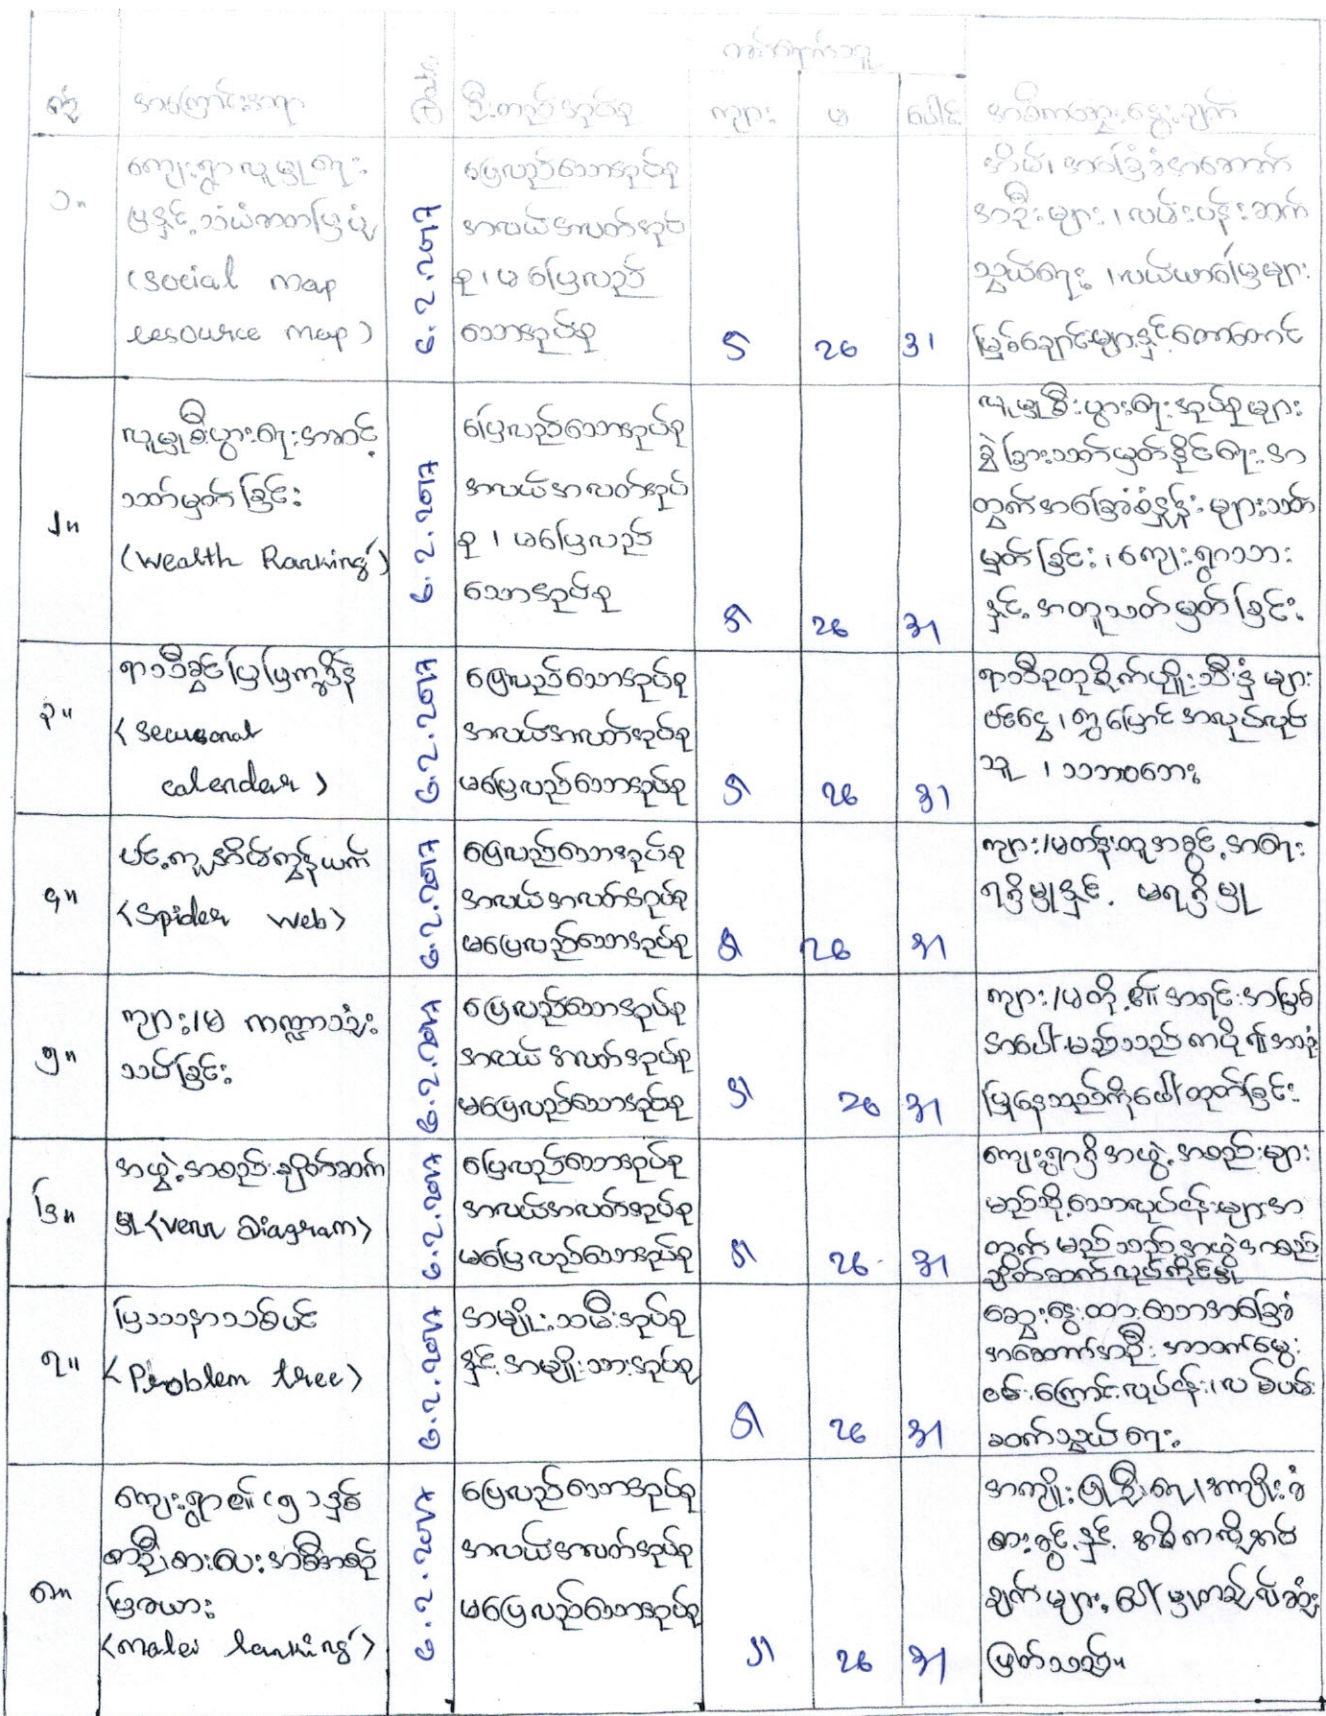 တက်ရောက်သူ
စဉ် အကြောင်းအရာ ဦးတည်အုပ်စု ကျား မ ပေါင်း အဓိကဆွေးနွေးချက်
၁။
ကျေးရွာလူမှုရေး
မြေနှင့်သယံဇာတပြပုံ
(social map
resource map)
6.2.2017
ပြေလည်သောအုပ်စု
အလယ်အလတ်အုပ်
စု၊ မပြေလည်
သောအုပ်စု
5 26 31
အိမ်၊ အခြေခံအဆောက်
အဦးများ၊ လမ်းပန်းဆက်
သွယ်ရေး၊ လယ်ယာမြေများ
မြစ်ချောင်းများနှင့်တောတောင်
၂။
လူမှုစီးပွားရေးအဆင့်
သတ်မှတ်ခြင်း
(Wealth Ranking)
6.2.2017
ပြေလည်သောအုပ်စု
အလယ်အလတ်အုပ်
စု၊ မပြေလည်
သောအုပ်စု
5 26 31
လူမှုစီးပွားရေးအုပ်စုများ
ခွဲခြားသတ်မှတ်နိုင်ရေးအ
တွက်အခြေခံစံနှုန်းများသတ်
မှတ်ခြင်း၊ ကျေးရွာသား
နှင့်အတူသတ်မှတ်ခြင်း
၃။
ရာသီခွင်ပြပြက္ခဒိန်
<seasonal
calendar>
6.2.2017
ပြေလည်သောအုပ်စု
အလယ်အလတ်အုပ်စု
မပြေလည်သောအုပ်စု
5 26 31
ရာသီဥတုစိုက်ပျိုးသီးနှံများ
ဝင်ငွေ၊ ရွှေ့ပြောင်းအလုပ်လုပ်
သူ၊ သဘာဝဘေး
၄။
ပင့်ကူအိမ်ကွန်ယက်
<Spider web>
6.2.2017
ပြေလည်သောအုပ်စု
အလယ်အလတ်အုပ်စု
မပြေလည်သောအုပ်စု
5 26 31
ကျား/မတန်းတူအခွင့်အရေး
ရရှိမှုနှင့် မရရှိမှု
၅။
ကျား/မ ကဏ္ဍာသုံး
သပ်ခြင်း
6.2.2017
ပြေလည်သောအုပ်စု
အလယ်အလတ်အုပ်စု
မပြေလည်သောအုပ်စု
5 26 31
ကျား/မတို့၏အရင်းအမြစ်
အပေါ်မည်သည်ကပို၍အသုံး
ပြုနေသည်ကိုဖော်ထုတ်ခြင်း
၆။
အဖွဲ့အစည်းချိတ်ဆက်
မှု<Venn Diagram>
6.2.2017
ပြေလည်သောအုပ်စု
အလယ်အလတ်အုပ်စု
မပြေလည်သောအုပ်စု
5 26 31
ကျေးရွာရှိအဖွဲ့အစည်းများ
မည်သို့သောလုပ်ငန်းများအ
တွက်မည်သည့်အဖွဲ့အစည်း
ချိတ်ဆက်လုပ်ကိုင်မှု
၇။
ပြဿနာသစ်ပင်
<Problem tree>
6.2.2017
အမျိုးသမီးအုပ်စု
နှင့်အမျိုးသားအုပ်စု
5 26 31
ဆွေးနွေးထားသောအခြေခံ
အဆောက်အဦးအသက်မွေး
ဝမ်းကြောင်းလုပ်ငန်း၊ လမ်းပမ်း
ဆက်သွယ်ရေး
၈။
ကျေးရွာ၏(၅)နှစ်
စာဦးစားပေးအစီအစဉ်
ပြဇယား
<Matrix ranking>
6.2.2017
ပြေလည်သောအုပ်စု
အလယ်အလတ်အုပ်စု
မပြေလည်သောအုပ်စု
5 26 31
အကျိုးပြုဦးရေ၊ အကျိုးခံ
စားခွင့်နှင့် အဓိကလိုအပ်
ချက်များပေါ်မူတည်၍ဆုံး
ဖြတ်သည်။